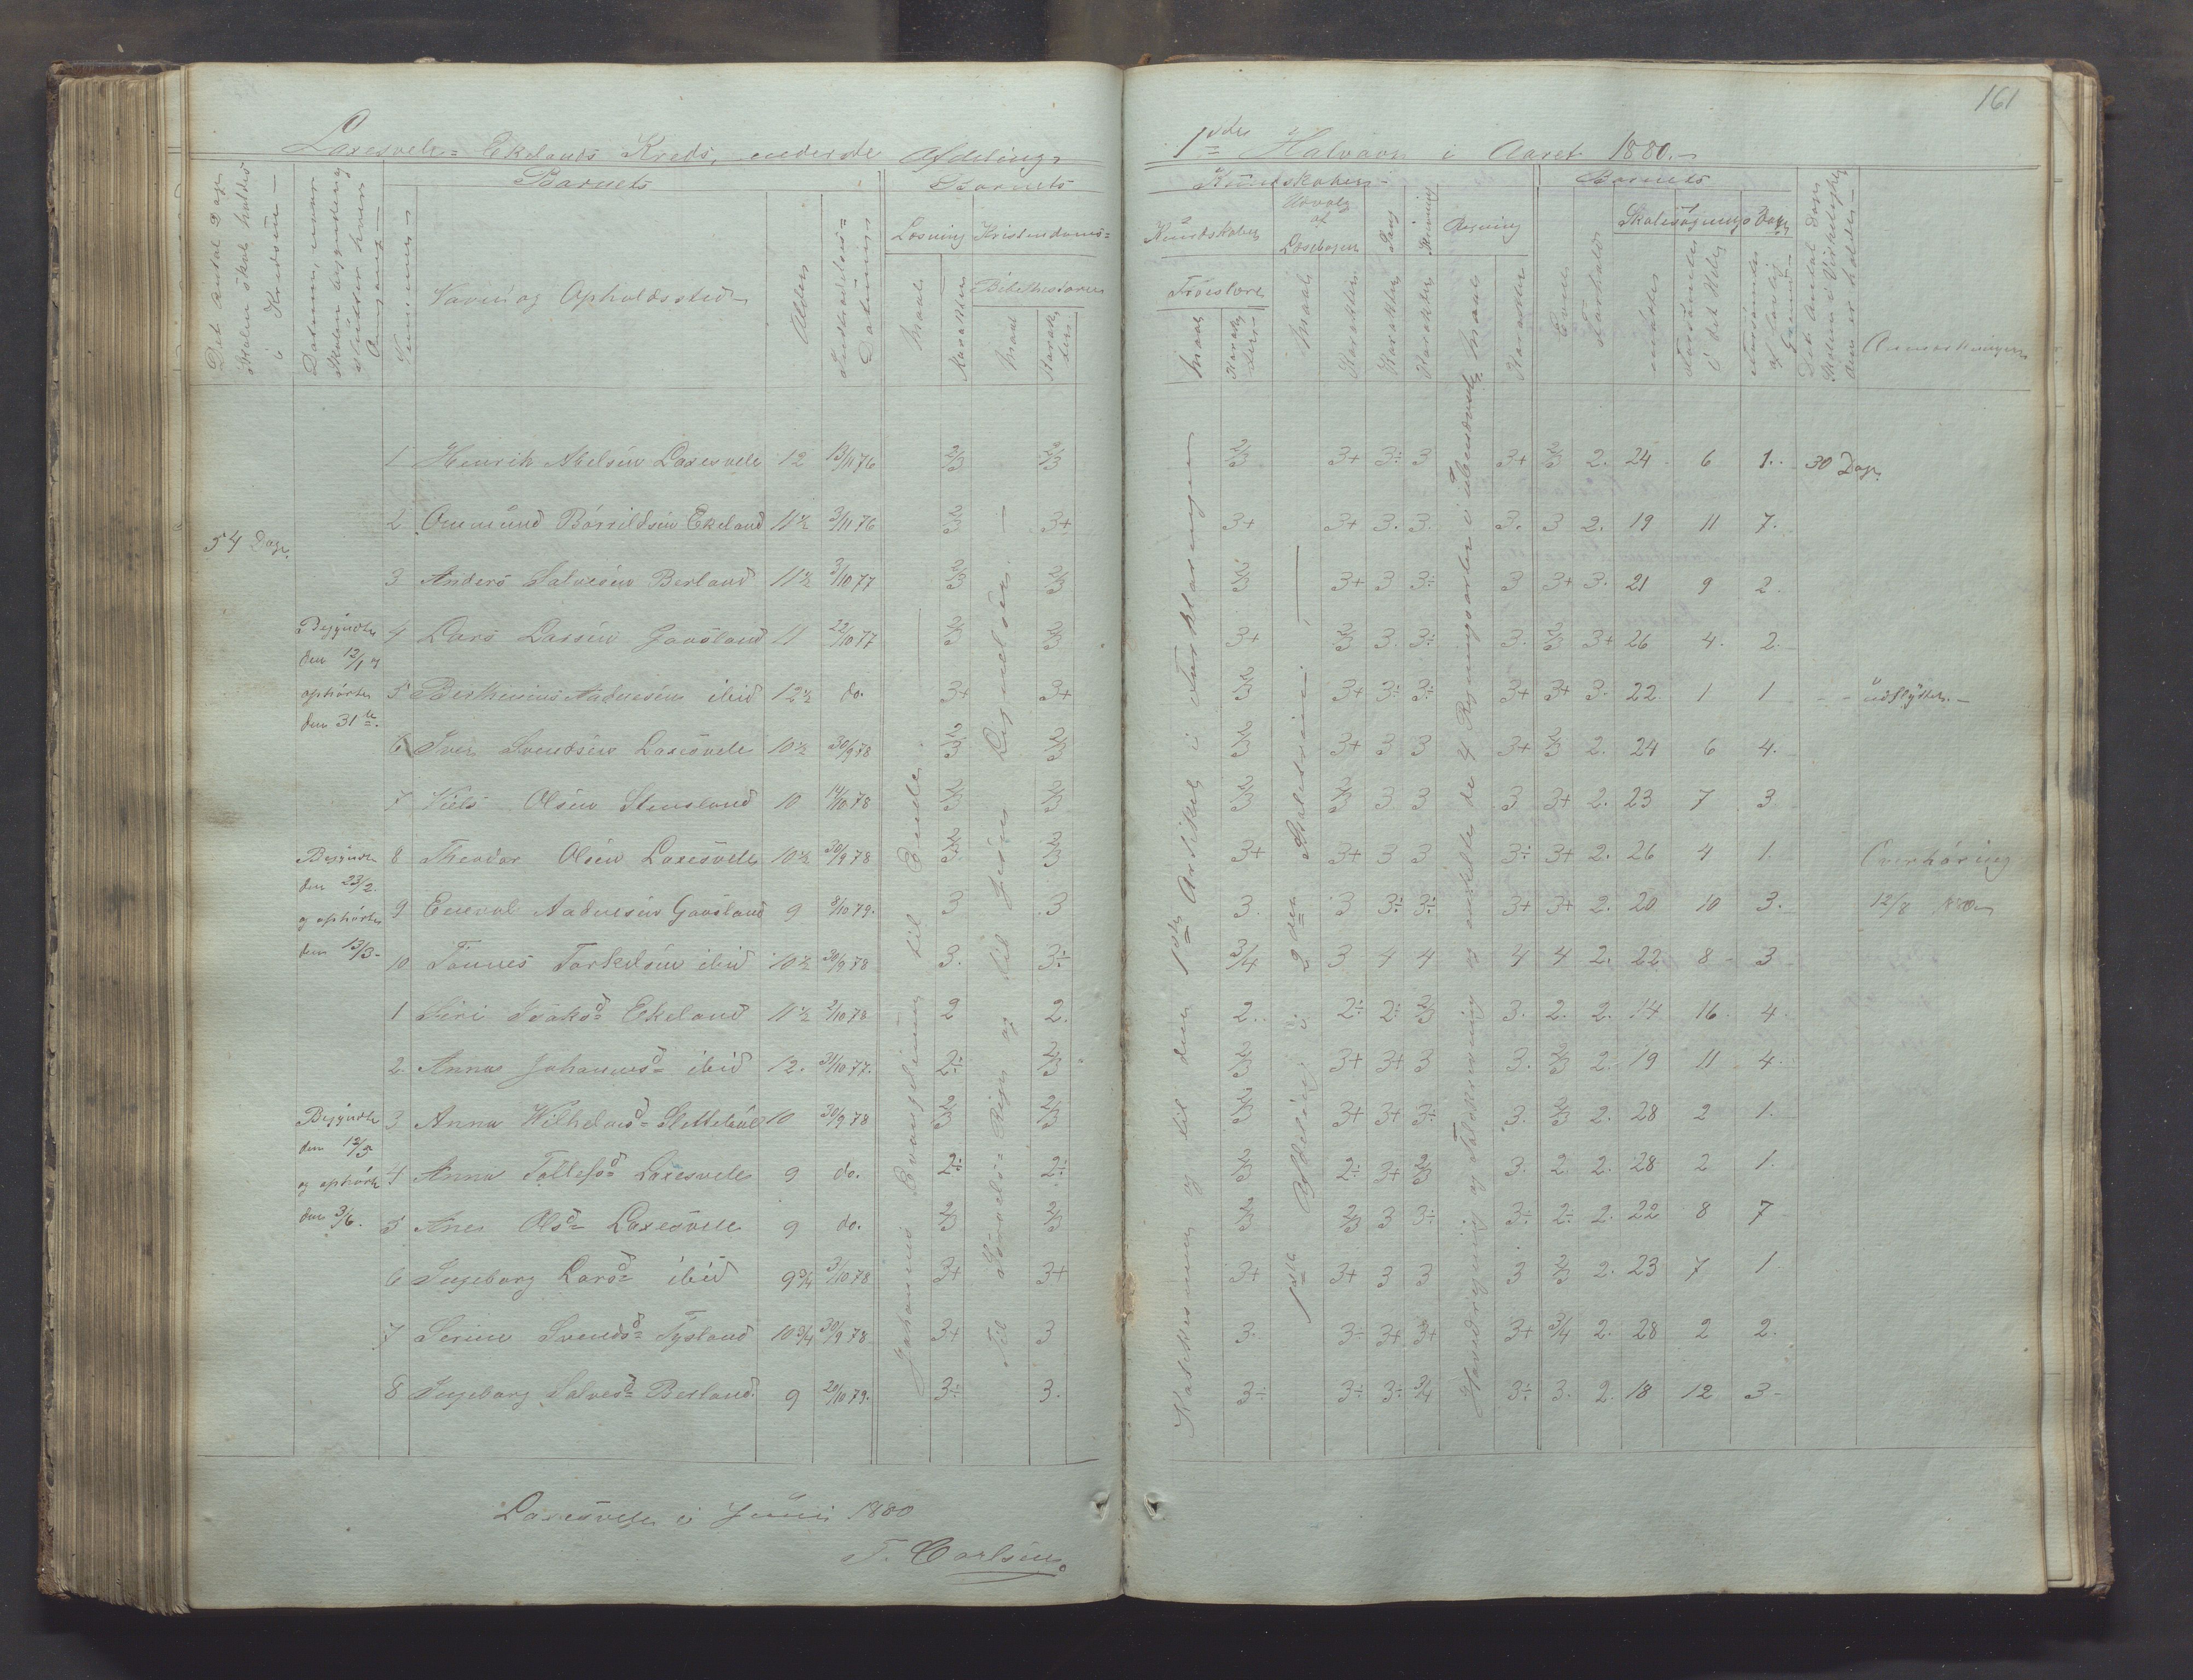 161
Laxesvele= Ekelands Kreds, nederste Afdeling
1ste Halvaar i Aaret 1880.
Barnets
Barnets
Kundskaber
Barnets
Det Antal Dage Skolen skal holdes i Kredsen
Datum, naar Skolen begynder og slutter hver Omgang
Nummer
Navn og Opholdssted
Alder
Indtrædelses= Datum
Læsning
Maal
Karakter
Kristendoms=
Bibelhistorie
Maal
Karakter
Kundskaber
Troeslære
Maal
Karakter
Udvalg af Læsebogen
Maal
Karakter
Sang
Karakter
Skrivning
Karakter
Regning
Maal
Karakter
Evner
Forhold
Skolesøgnings Dage
mødte
forsømte i det Hele
forsømte af lovlig Grund
Det Antal Dage Skolen i Virkeligheden er holdt
Anmærkninger
54 Dage.
Begyndte
den 12/1 og
ophørte
den 31te.
Begyndte
den 23/2.
og ophørte
den 13/3.
Begyndte
den 12/5
og ophørte
den 3/6.
Johannes Evangelium til Ende.
Til Samuels= Bøger og til Jesu Lignelser.
Katekismus og til den 1ste Artikel i Forklaringen
1ste Afdeling i 2den Skoletrin.
Hovedregning og Taltavning og enkelte de 4 Regningsarter i Ubenævnte
1 Henrik Abelsen Laxesvele 12 13/11 76 2/3 2/3 2/3 3+ 3÷ 3 3+ 2/3 2. 24 6 1. 30 Dage
2 Ommund Börrildsen Ekeland 11½ 3/11 76 2/3 3+ 3+ 3+ 3. 3. 3. 3 2. 19 11 7.
3 Anders Salvesen Berland 11½ 3/10 77 2/3 2/3 2/3 3+ 3 3÷ 3 3+ 3. 21 9 2.
4 Lars Larsen Gausland 11 22/10 77 2/3 2/3 3+ 2/3 3. 3÷ 3. 2/3 3+ 26 4. 2.
5 Berthinius Aadnesen ibid 12½ do. 3+ 3+ 2/3 3+ 3÷ 3÷ 3+ 3+ 3. 22. 1 1 udflyttet.
6 Iver Svendsen Laxesvele 10½ 30/9 78 2/3 2/3 2/3 3+ 3 3 3+ 2/3 2. 24 6 4.
7 Niels Olsen Stensland 10 14/10 78 2/3 2/3 2/3 2/3 3 3 3 3+ 2. 23 7 3
8 Theodor Olsen Laxesvele 10½ 30/9 78 2/3 2/3 3+ 3+ 3 3 3÷ 3+ 2. 26 4 1. Overhøring
9 Enevol Aadnesen Gausland 9 8/10 79. 3 3 3. 3 3÷ 3÷ 3+ 3+ 2. 20 10 3. 12/8
10 Tønnes Torkelsen ibid 10½ 30/9 78 3. 3÷ 3/4 3 4 4 4 4 2. 22 8 3
1 Siri Isaksd Ekeland 11½ 2/10 78 2 2. 2. 2÷ 2÷ 2/3 3. 2. 2. 14 16 4.
2. Anna Johannesd ibid 12. 31/10 77. 2÷ 2/3 2/3 3+ 3+ 3 3. 2/3 2. 19 11 4.
3 Anna Wilhelmsd Slettebø 10 30/9 78 2/3 2/3 2/3 3+ 3+ 3÷ 3. 2/3 2. 28 2 1.
4 Anna Tollefsd Laxesvele 9 do. 2÷ 2÷ 2/3 2÷ 3+ 2/3 3. 2. 2. 28 2 1.
5 Ane Olsd Laxesvele 9 do. 2/3 2/3 2/3 2/3 3 3÷ 3÷ 2÷ 2. 22 8 7
6 Ingeborg Larsd ibid 9¾ 3/10 78 3+ 3+ 3+ 3+ 3 3 3 2/3 2. 23 7 1.
7 Serine Svendsd Tysland 10¾ 30/9 78 3+ 3 3. 3÷ 3+ 3+ 3+ 3/4 2. 28 2 2.
8 Ingeborg Salvesd Berland. 9 20/10 79. 3÷ 3. 3÷ 3÷ 3÷ 3/4 3÷ 3. 2. 18 12 3
Laxesvele i Juni 1880
T. Carlsen.